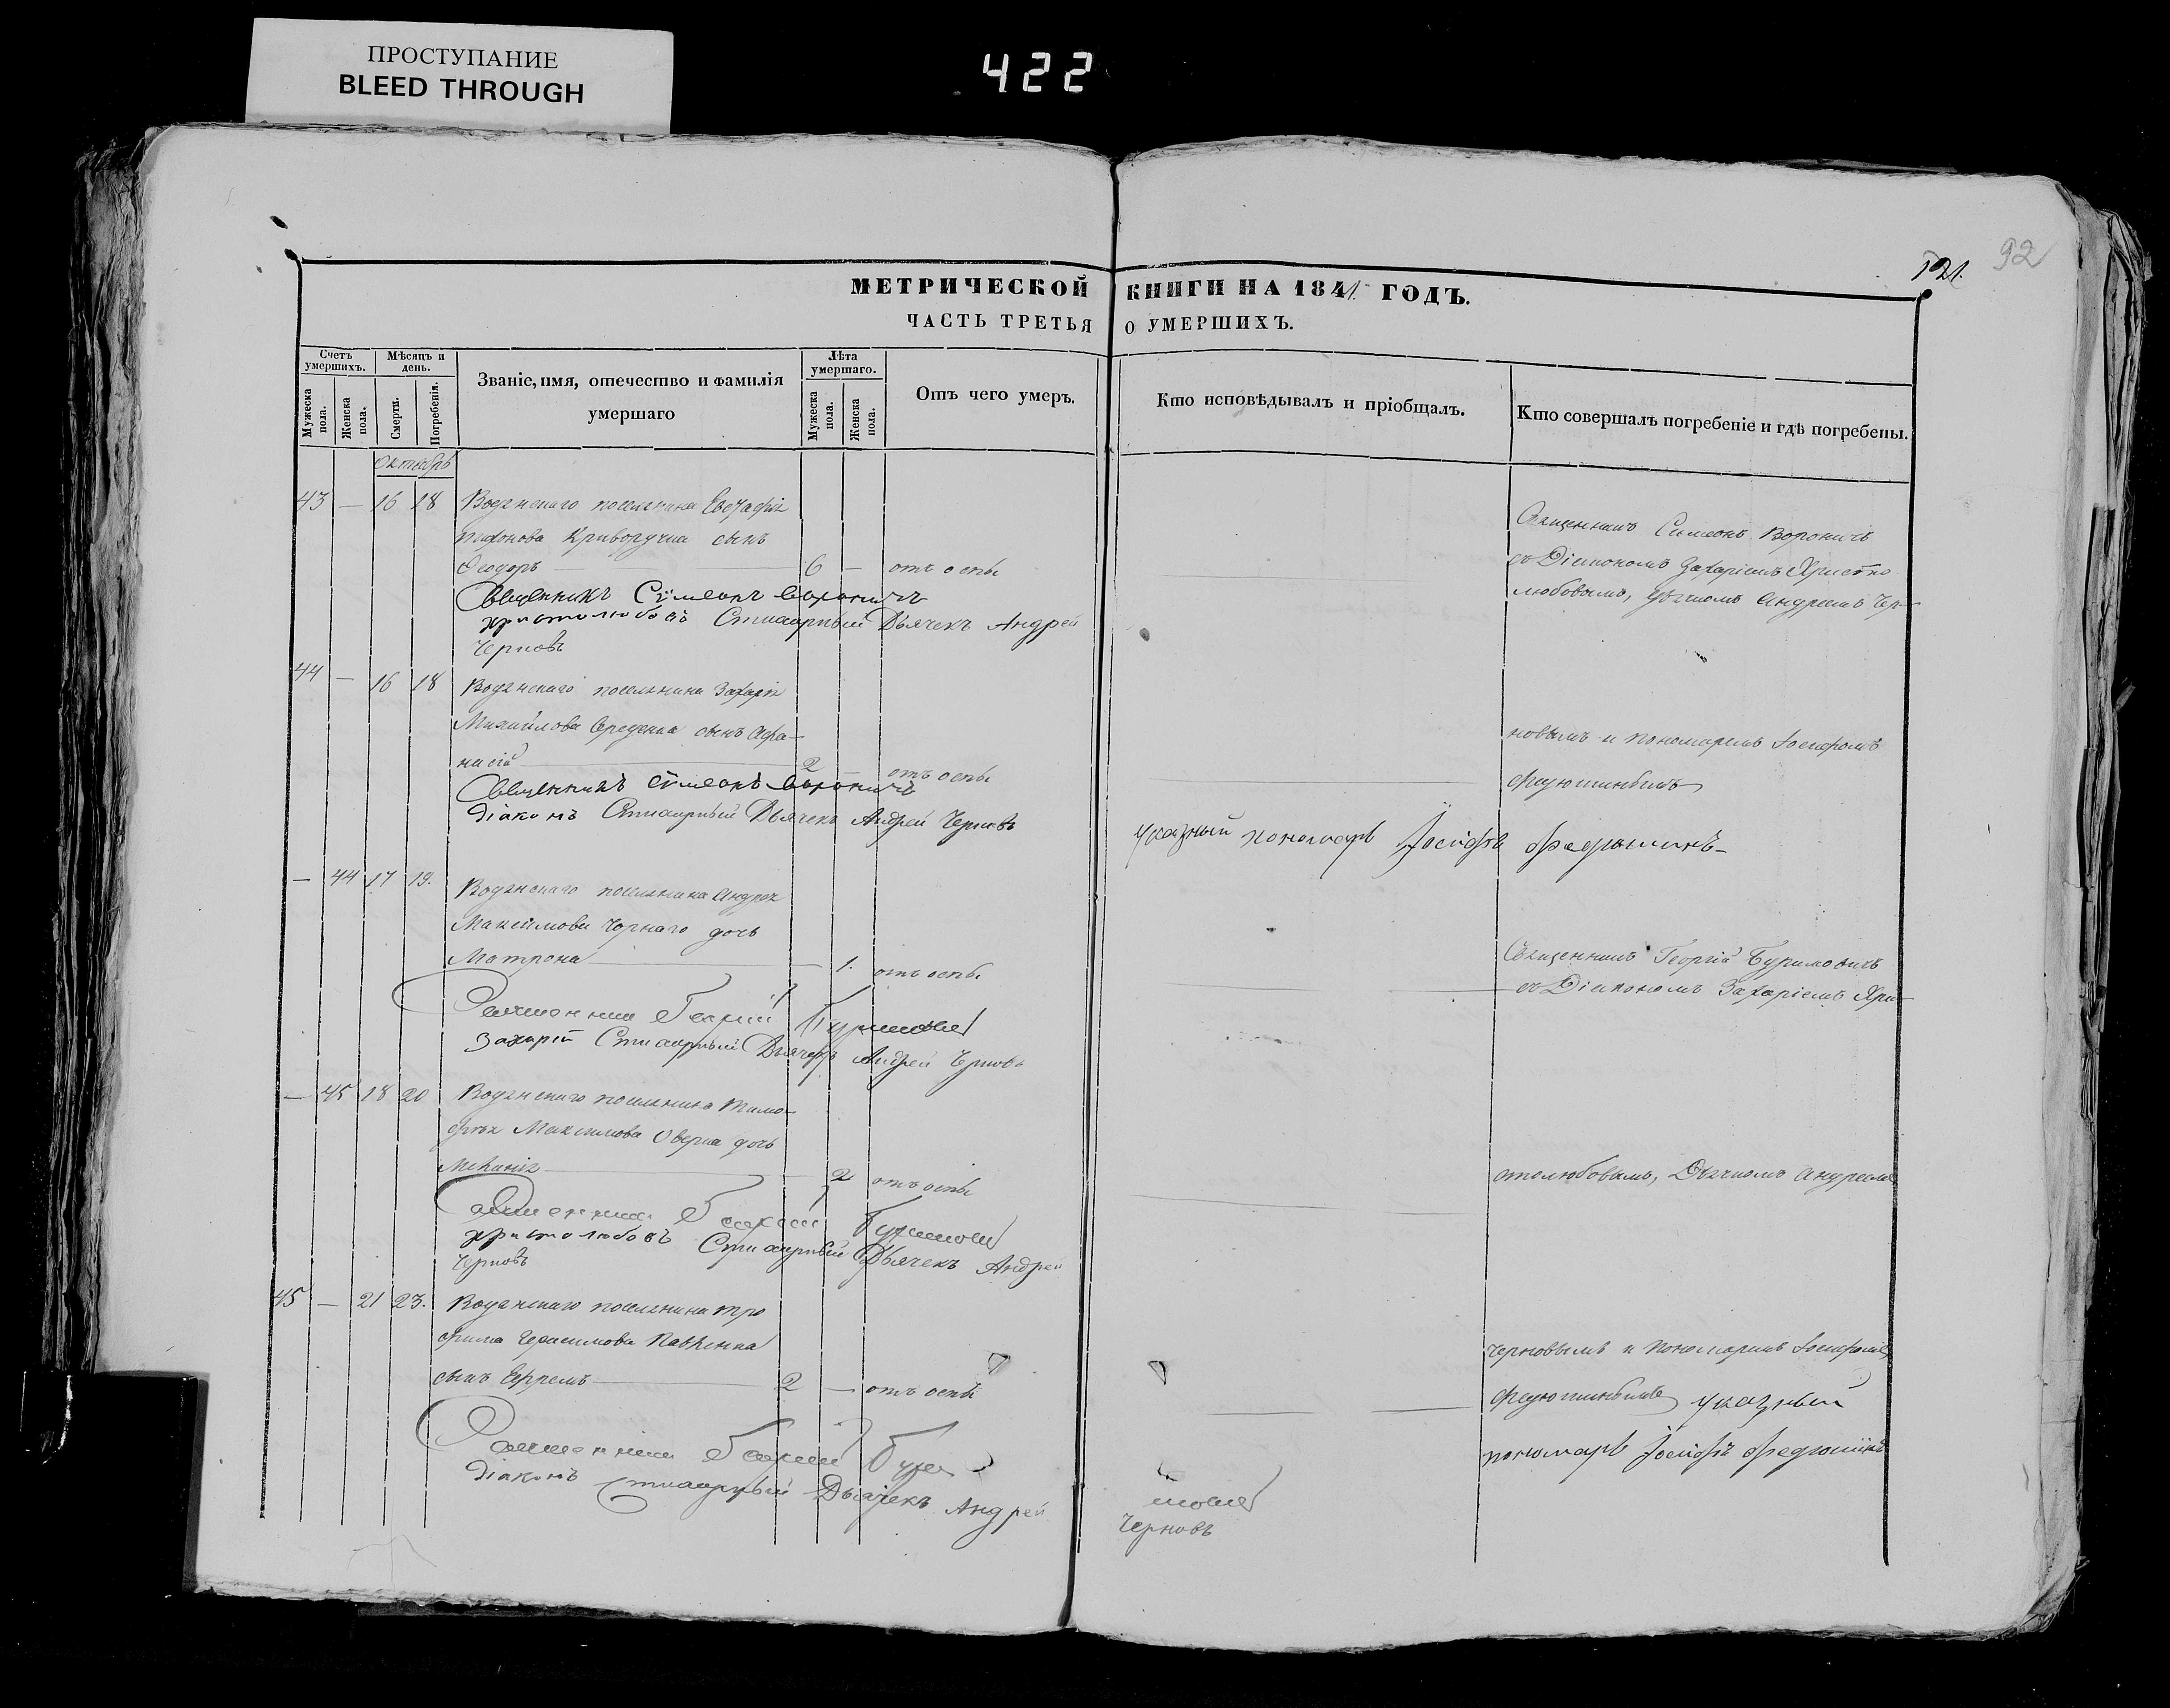 ПРОСТУПАНИЕ
BLEED THROUGH
422
92
121.
МЕТРИЧЕСКОЙ КНИГИ НА 1841 ГОДЪ.
ЧАСТЬ ТРЕТЬЯ О УМЕРШИХЪ.
Счетъ умершихъ.
Мѣсяцъ и день.
Званіе, имя, отечество и фамилія умершаго
Лѣта умершаго.
Отъ чего умеръ.
Кто исповѣдывалъ и пріобщалъ.
Кто совершалъ погребеніе и гдѣ погребены.
Мужеска пола.
Женска пола.
Смерти.
Погребенія.
Мужеска пола.
Женска пола.
Октябрь
43 — 16 18 Водянскаго поселянина Евстафія
Криворучка сынъ
Феодоръ — 6 — отъ оспы
Священникъ Сѵмеонъ Вороничъ
Христолюбовъ Стихарный Дьячекъ Андрей
Черновъ
Священникъ Симеонъ Вороничъ
съ Діакономъ Захаріемъ Христо
любовымъ, дьячкомъ Андреемъ Чер-
44 — 16 18 Водянскаго поселянина Захарія
Михайлова Середенка сынъ Афа-
насій — 2 — отъ оспы
Священникъ Сѵмеонъ Вороничъ
Діаконъ Стихарный Дьячекъ Андрей Черновъ
новымъ и пономаремъ Іосифомъ
Федюшинымъ
указный пономарь Іосифъ Федюшинъ
— 44 17 19. Водянскаго поселянина Андрея
Максимова Чорнаго дочь
Матрона — 1. отъ оспы
Священникъ Георгій
Захарій Стихарный Дьячекъ Андрей Черновъ
Священникъ Георгій
съ Діакономъ Захаріемъ Хри-
— 45 18 20 Водянскаго поселянина Тимо-
фея Максимова дочь
Меланія — 2 отъ оспы
Священникъ Георгій
Христолюбовъ Стихарный Дьячекъ Андрей
Черновъ
столюбовымъ, Дьячкомъ Андреемъ
45 — 21 23. Водянскаго поселянина Тро
фима Герасимова Павленка
сынъ Ефремъ — 2 — отъ оспы
Священникъ Георгій
Діаконъ Стихарный Дьячекъ Андрей
Черновъ
Черновымъ и Пономаремъ Іосифомъ
Федюшинымъ указный
пономарь Іосифъ Федюшинъ